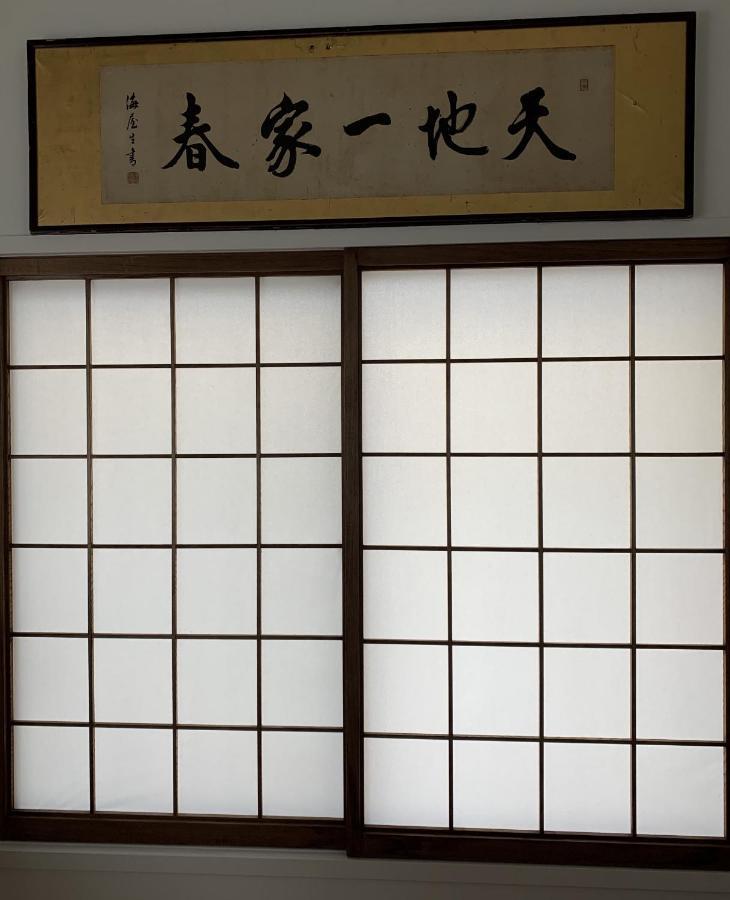 天地一家春
海屋生書